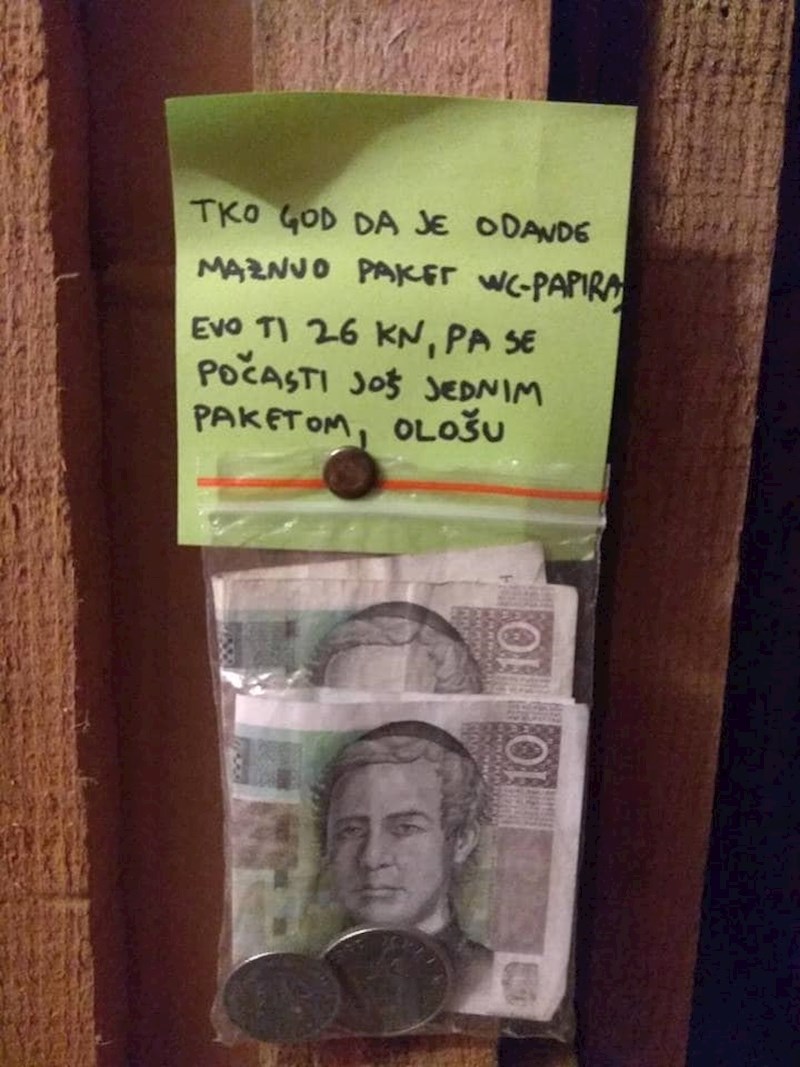 TKO GOD DA JE ODANDE
MAZNUO PAKET WC-PAPIRA,
EVO TI 26 KN, PA SE
POČASTI JOŠ JEDNIM
PAKETOM, OLOŠU
10
10